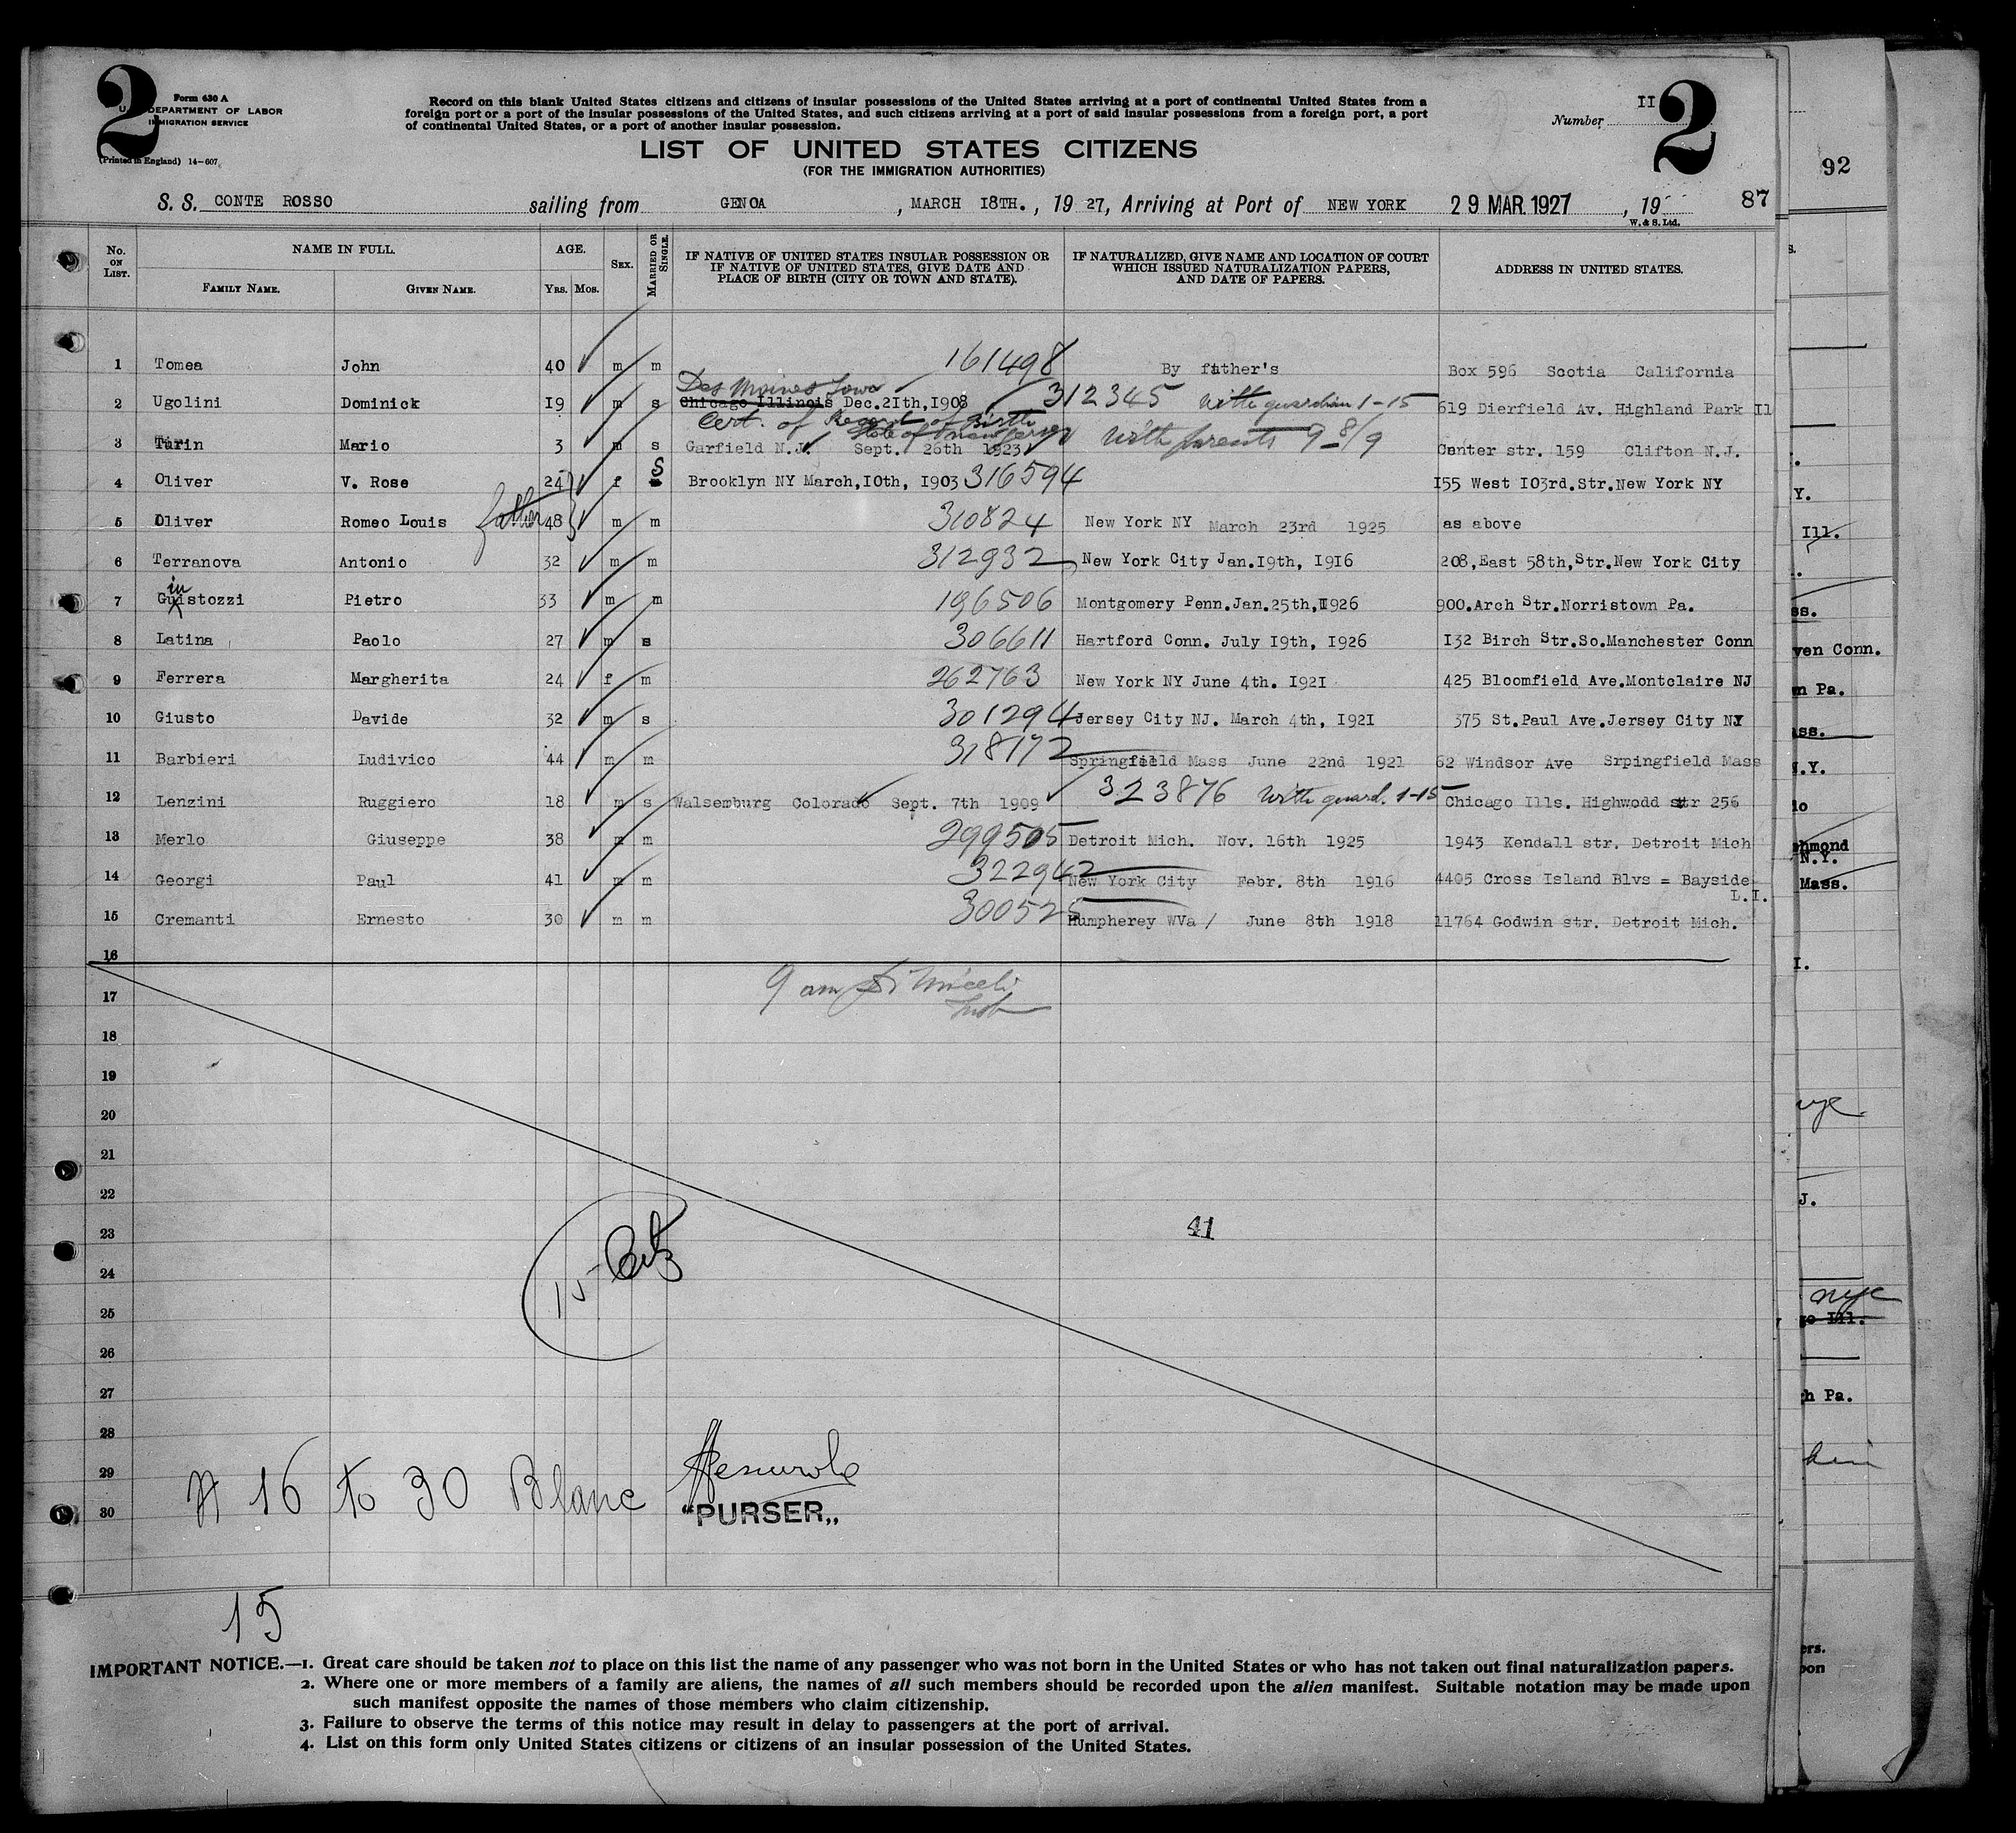 2
Form 630 A
U. S. DEPARTMENT OF LABOR
IMMIGRATION SERVICE
(Printed in England) 14-607
Record on this blank United States citizens and citizens of insular possessions of the United States arriving at a port of continental United States from a
foreign port or a port of the insular possessions of the United States, and such citizens arriving at a port of said insular possessions from a foreign port, a port
of continental United States, or a port of another insular possession.
Number II
2
LIST OF UNITED STATES CITIZENS
(FOR THE IMMIGRATION AUTHORITIES)
92
S. S. CONTE ROSSO sailing from GENOA, MARCH 18TH., 1927, Arriving at Port of NEW YORK 29 MAR. 1927, 19
87
W. & S. Ltd.
No. ON LIST. NAME IN FULL. FAMILY NAME. GIVEN NAME. AGE. YRS. MOS. SEX. MARRIED OR SINGLE.
IF NATIVE OF UNITED STATES INSULAR POSSESSION OR IF NATIVE OF UNITED STATES, GIVE DATE AND PLACE OF BIRTH (CITY OR TOWN AND STATE).
IF NATURALIZED, GIVE NAME AND LOCATION OF COURT WHICH ISSUED NATURALIZATION PAPERS, AND DATE OF PAPERS.
ADDRESS IN UNITED STATES.
1 Tomea John 40 m m 161498 By father's Box 596 Scotia California
Des Moines Iowa
2 Ugolini Dominick 19 m s Chicago Illinois Dec.21th,1908 312345 with guardian 1-15 619 Dierfield Av. Highland Park Il
Cert. of Record of Birth
State of New Jersey
3 Turin Mario 3 m s Garfield N.J. Sept. 26th 1923 With parents 9-8/9 Center str. 159 Clifton N.J.
4 Oliver V. Rose 24 f S Brooklyn NY March,10th, 1903 316594 155 West 103rd.Str.New York NY
5 Oliver Romeo Louis father 48 m m 310824 New York NY March 23rd 1925 as above
6 Terranova Antonio 32 m m 312932 New York City Jan.19th, 1916 208,East 58th,Str.New York City
in
7 Guistozzi Pietro 33 m m 196506 Montgomery Penn.Jan.25th,1926 900.Arch Str.Norristown Pa.
8 Latina Paolo 27 m s 306611 Hartford Conn. July 19th, 1926 132 Birch Str.So.Manchester Conn
9 Ferrera Margherita 24 f m 262763 New York NY June 4th. 1921 425 Bloomfield Ave.Montclaire NJ
10 Giusto Davide 32 m s 301294 Jersey City NJ. March 4th, 1921 375 St.Paul Ave.Jersey City NJ
11 Barbieri Ludivico 44 m m 318172 Springfield Mass June 22nd 1921 62 Windsor Ave Srpingfield Mass
12 Lenzini Ruggiero 18 m s Walsemburg Colorado Sept. 7th 1909 323876 with guard. 1-15 Chicago Ills. Highwodd str 256
13 Merlo Giuseppe 38 m m 299505 Detroit Mich. Nov. 16th 1925 1943 Kendall str. Detroit Mich
14 Georgi Paul 41 m m 322942 New York City Febr. 8th 1916 4405 Cross Island Blvs = Bayside
L.I.
15 Cremanti Ernesto 30 m m 300525 Humpherey WVa / June 8th 1918 11764 Godwin str. Detroit Mich.
16
9 am
17
18
19
20
21
22
23
41
24
15
25
26
27
28
29
N 16 to 30 Blanc
30
"PURSER,,
15
IMPORTANT NOTICE.—1. Great care should be taken not to place on this list the name of any passenger who was not born in the United States or who has not taken out final naturalization papers.
2. Where one or more members of a family are aliens, the names of all such members should be recorded upon the alien manifest. Suitable notation may be made upon
such manifest opposite the names of those members who claim citizenship.
3. Failure to observe the terms of this notice may result in delay to passengers at the port of arrival.
4. List on this form only United States citizens or citizens of an insular possession of the United States.
Y.
Ill.
ss.
ven Conn.
n Pa.
ass.
N.Y.
hmond
N.Y.
Mass.
I.
nyc
J.
nyc
go Ill.
h Pa.
ers.
pon